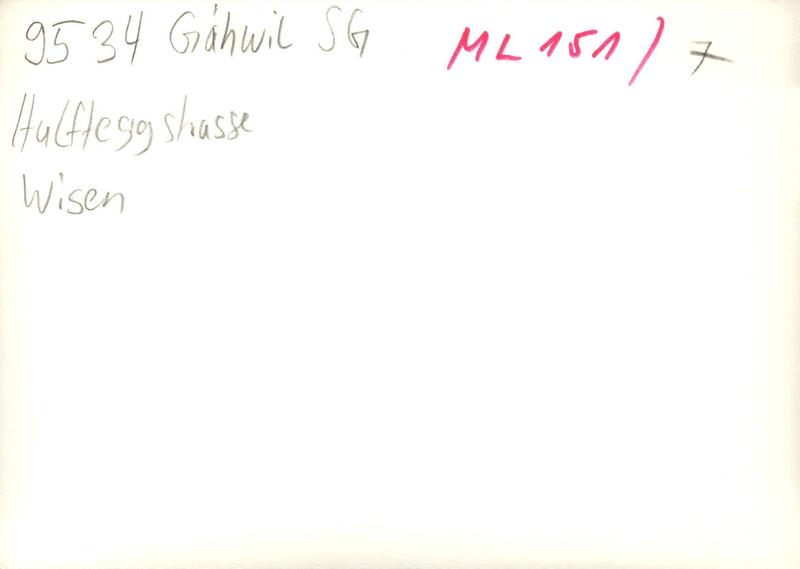 9534 Gähwil SG ML 151) 7
Hulfteggstrasse
Wisen